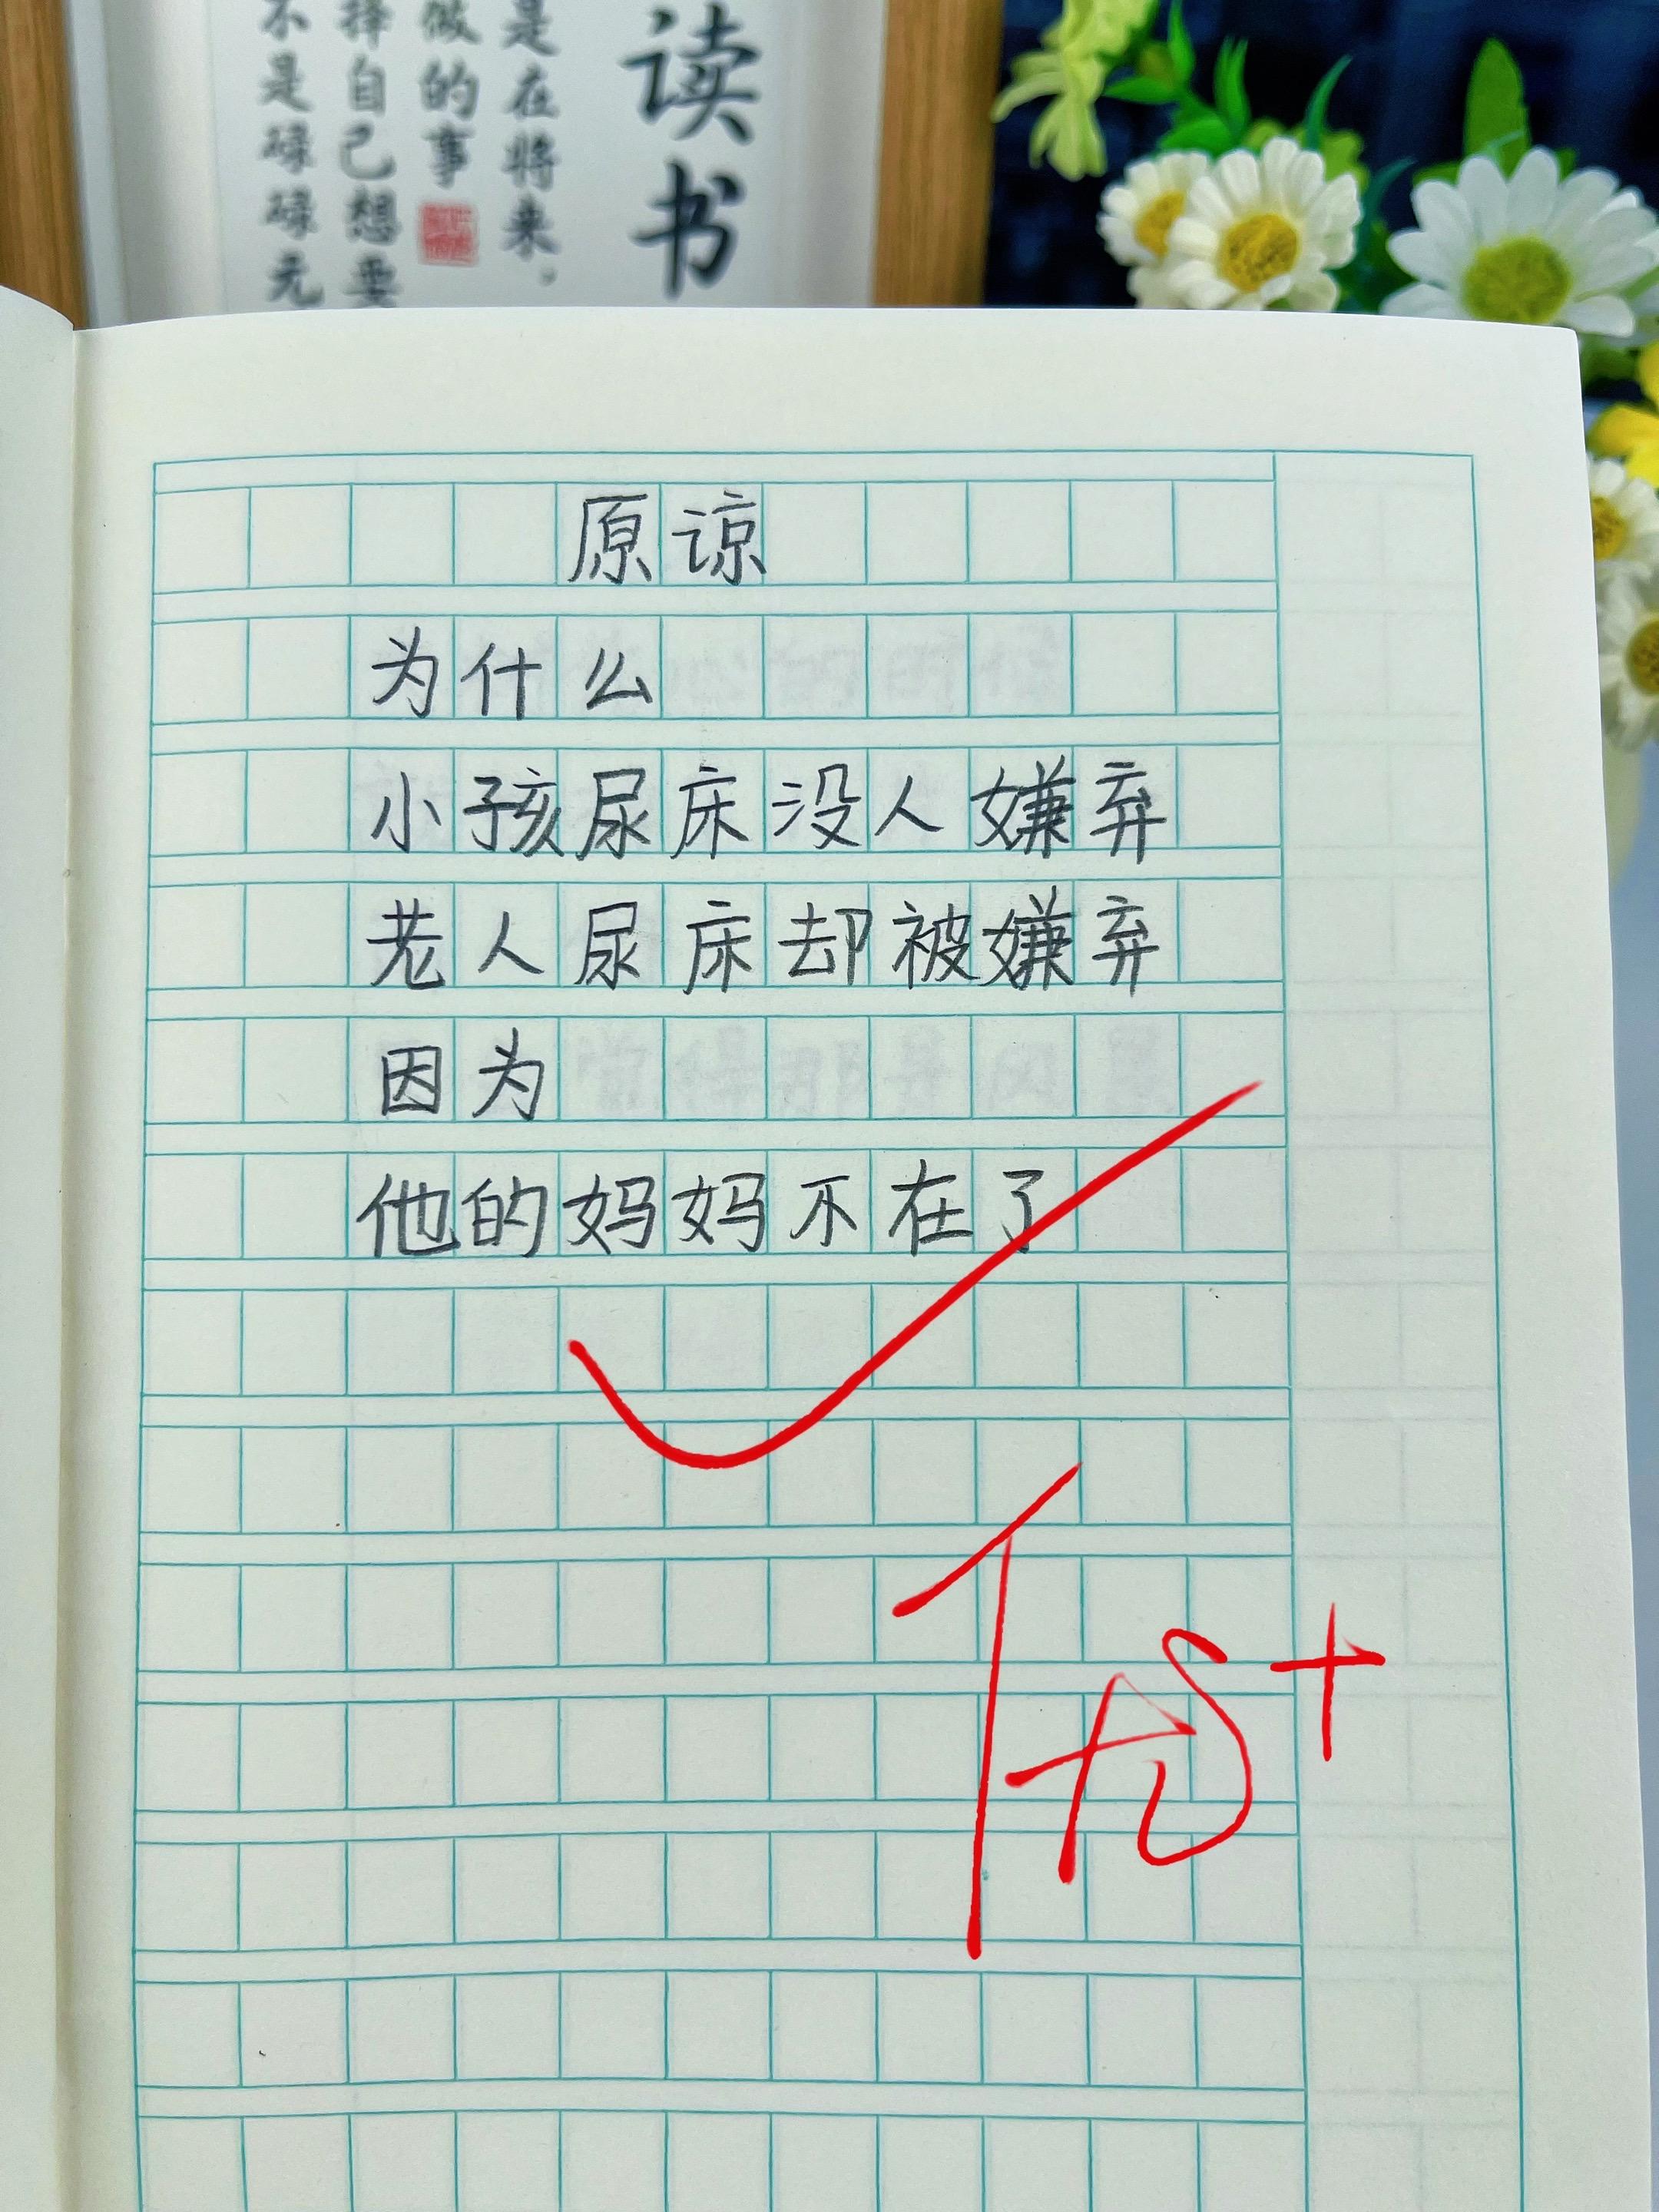 读书
是在将来，
做的事
择自己想要
不是碌碌无
原谅
为什么
小孩尿床没人嫌弃
老人尿床却被嫌弃
因为
他的妈妈不在了
优+